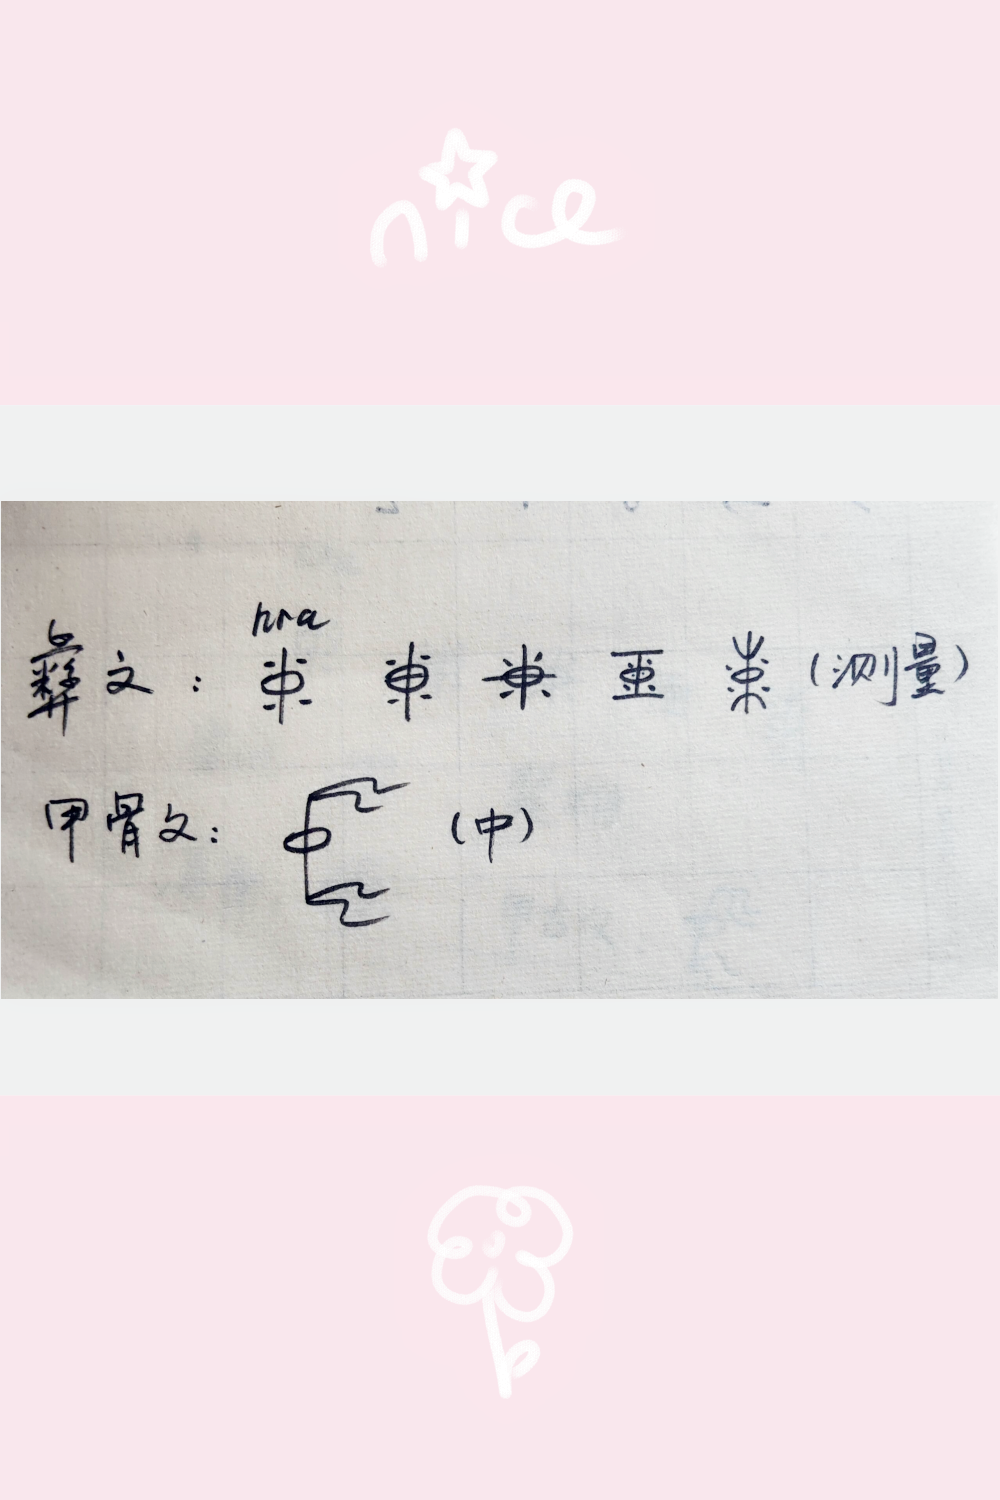 nice
hra
彝文：（测量）
甲骨文：（中）